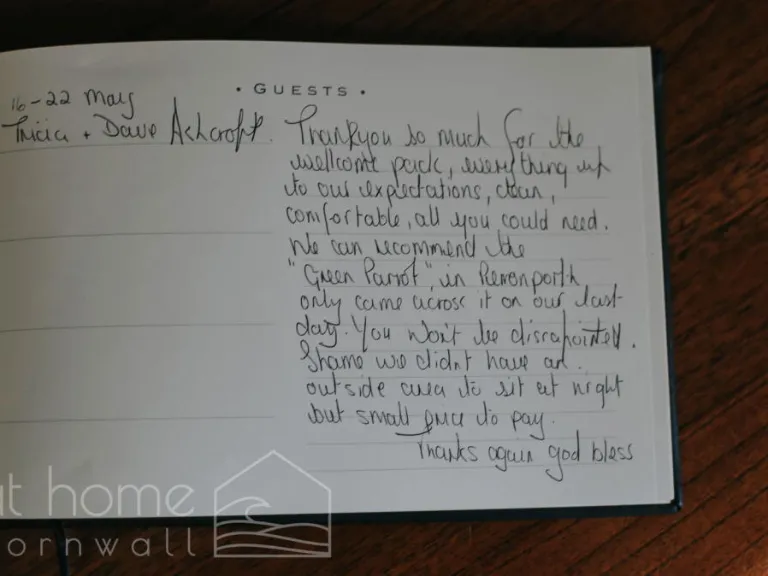 • GUESTS •
16-22 May
Tricia + Dave Ashcroft.
Thankyou so much for the
wellcome pack, everything up
to our expectations, clean,
comfortable, all you could need.
We can recommend the
"Green Parrot", in Perranporth
only came across it on our last
day. You won't be dissapointed.
Shame we didnt have an
outside area to sit at night
but small price to pay.
Thanks again god bless
at home
cornwall